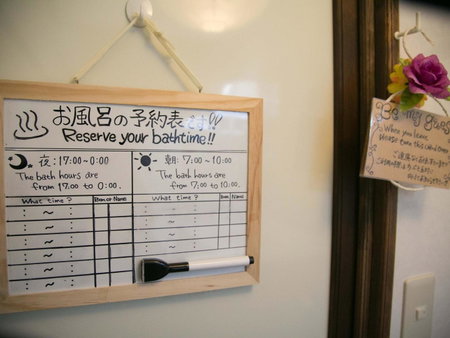 お風呂の予約表です!!
Reserve your bathtime!!
夜:17:00~0:00
The bath hours are
from 17:00 to 0:00.
朝:7:00~10:00
The bath hours are
from 7:00 to 10:00.
What time?
Room or Name
What time?
Room
Name
: ~ :
: ~ :
: ~ :
: ~ :
: ~ :
: ~ :
: ~ :
: ~ :
: ~ :
: ~ :
Be my guest
When you leave,
please turn this card down